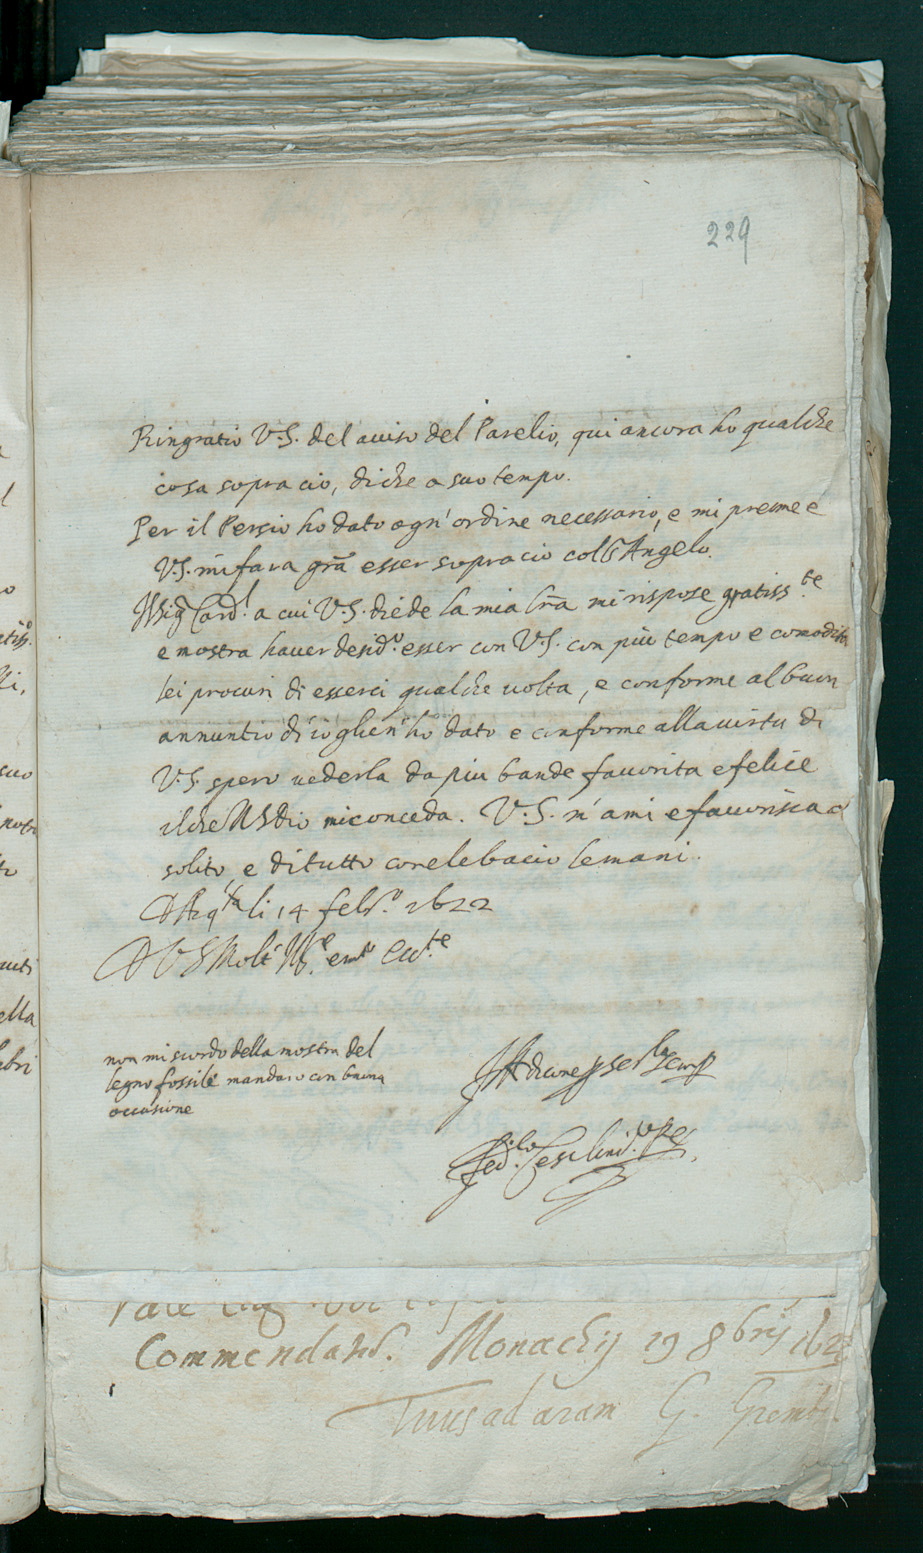 229
Ringratio V.S. del auiso del Parelio, qui ancora ho qualche
cosa sopra cio, di che a suo tempo.
Per il Persio ho dato ogn' ordine necessario, e mi preme e
V.S. mi fara gra esser sopra cio col S Angelo.
Il Sig Card.l a cui V.S. diede la mia lra mi rispose gratiss.te
e mostra hauer desid.o esser con V.S. con più tempo e comodità
lei procuri di esserci qualche uolta, e conforme al buon
annuntio di io glien' ho dato e conforme alla uirtu di
V.S. spero uederla da piu bande fauorita e felice
il che N S dio mi conceda. V.S. m' ami e fauorisca al
solito e di tutto core le bacio le mani.
D Acq.ta li 14 feb.o 1622
D V S Molt Ill.e
non mi scordo della mostra del
legno fossile mandaro con buona
occasione
Aff di cuore p ser la semp
Fed.co Cesi Linc.o P.e
Vale
Commendatiss. Monachij 19 8bris 162
Tuus ad aram G.
suo
ella